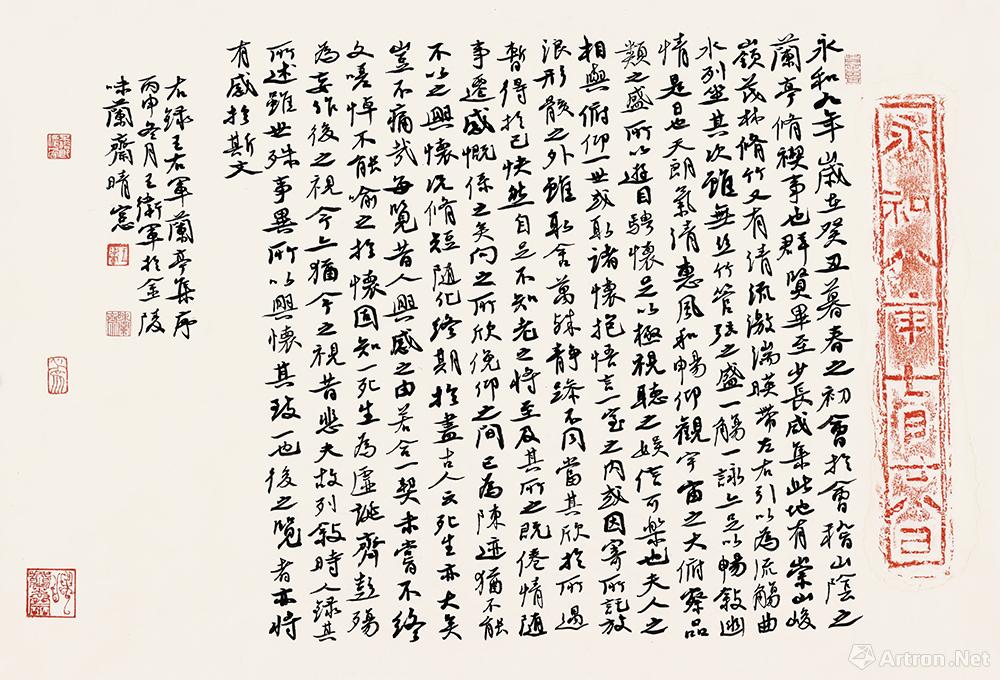 永和八年七月六日
永和九年歲在癸丑暮春之初會於會稽山陰之
蘭亭脩禊事也群賢畢至少長咸集此地有崇山峻
嶺茂林脩竹又有清流激湍暎帶左右引以為流觴曲
水列坐其次雖無絲竹管弦之盛一觴一詠亦足以暢敘幽
情是日也天朗氣清惠風和暢仰觀宇宙之大俯察品
類之盛所以遊目騁懷足以極視聽之娛信可樂也夫人之
相與俯仰一世或取諸懷抱悟言一室之內或因寄所託放
浪形骸之外雖取舍萬殊靜躁不同當其欣於所遇
暫得於己快然自足不知老之將至及其所之既倦情隨
事遷感慨係之矣向之所欣俛仰之間已為陳迹猶不能
不以之興懷況脩短隨化終期於盡古人云死生亦大矣
豈不痛哉每覽昔人興感之由若合一契未嘗不臨
文嗟悼不能喻之於懷固知一死生為虛誕齊彭殤
為妄作後之視今亦猶今之視昔悲夫故列敘時人錄其
所述雖世殊事異所以興懷其致一也後之覽者亦將
有感於斯文
右錄王右軍蘭亭集序
丙申冬月王衛軍於金陵
味蘭齋晴窗
Artron.Net